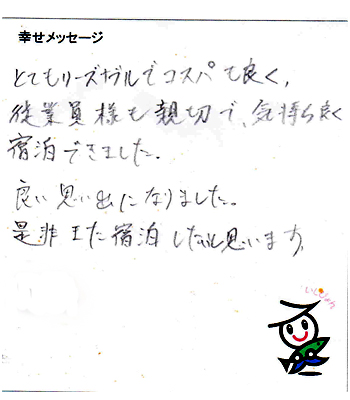 幸せメッセージ
とてもリーズナブルでコスパも良く、
従業員様も親切で、気持ち良く
宿泊できました。
良い思い出になりました。
是非また宿泊したいと思います。